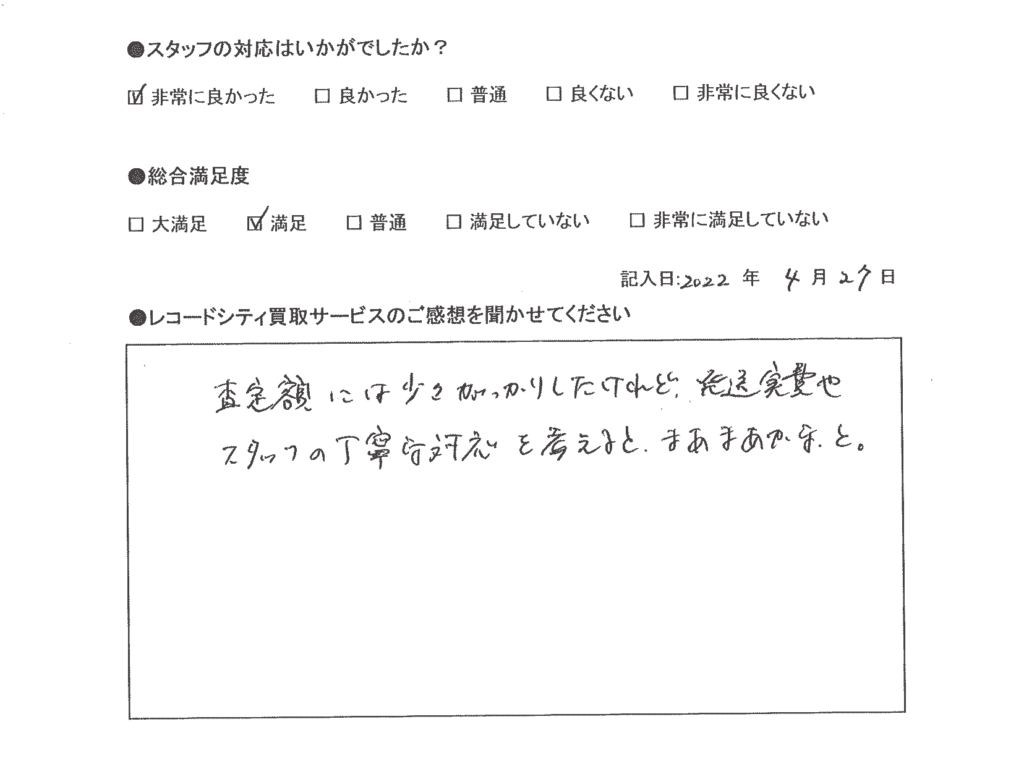 ●スタッフの対応はいかがでしたか？
☑ 非常に良かった □ 良かった □ 普通 □ 良くない □ 非常に良くない
●総合満足度
□ 大満足 ☑ 満足 □ 普通 □ 満足していない □ 非常に満足していない
記入日:2022 年 4 月 27 日
●レコードシティ買取サービスのご感想を聞かせてください
査定額には少々がっかりしたけれど、発送実費や
スタッフの丁寧な対応を考えると、まあまあかな、と。